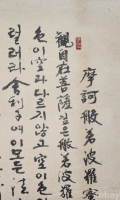 摩訶般若波羅蜜
觀自在菩薩깊은般若波羅
色이空과다르지않고空이色이
舍利子여이모든法